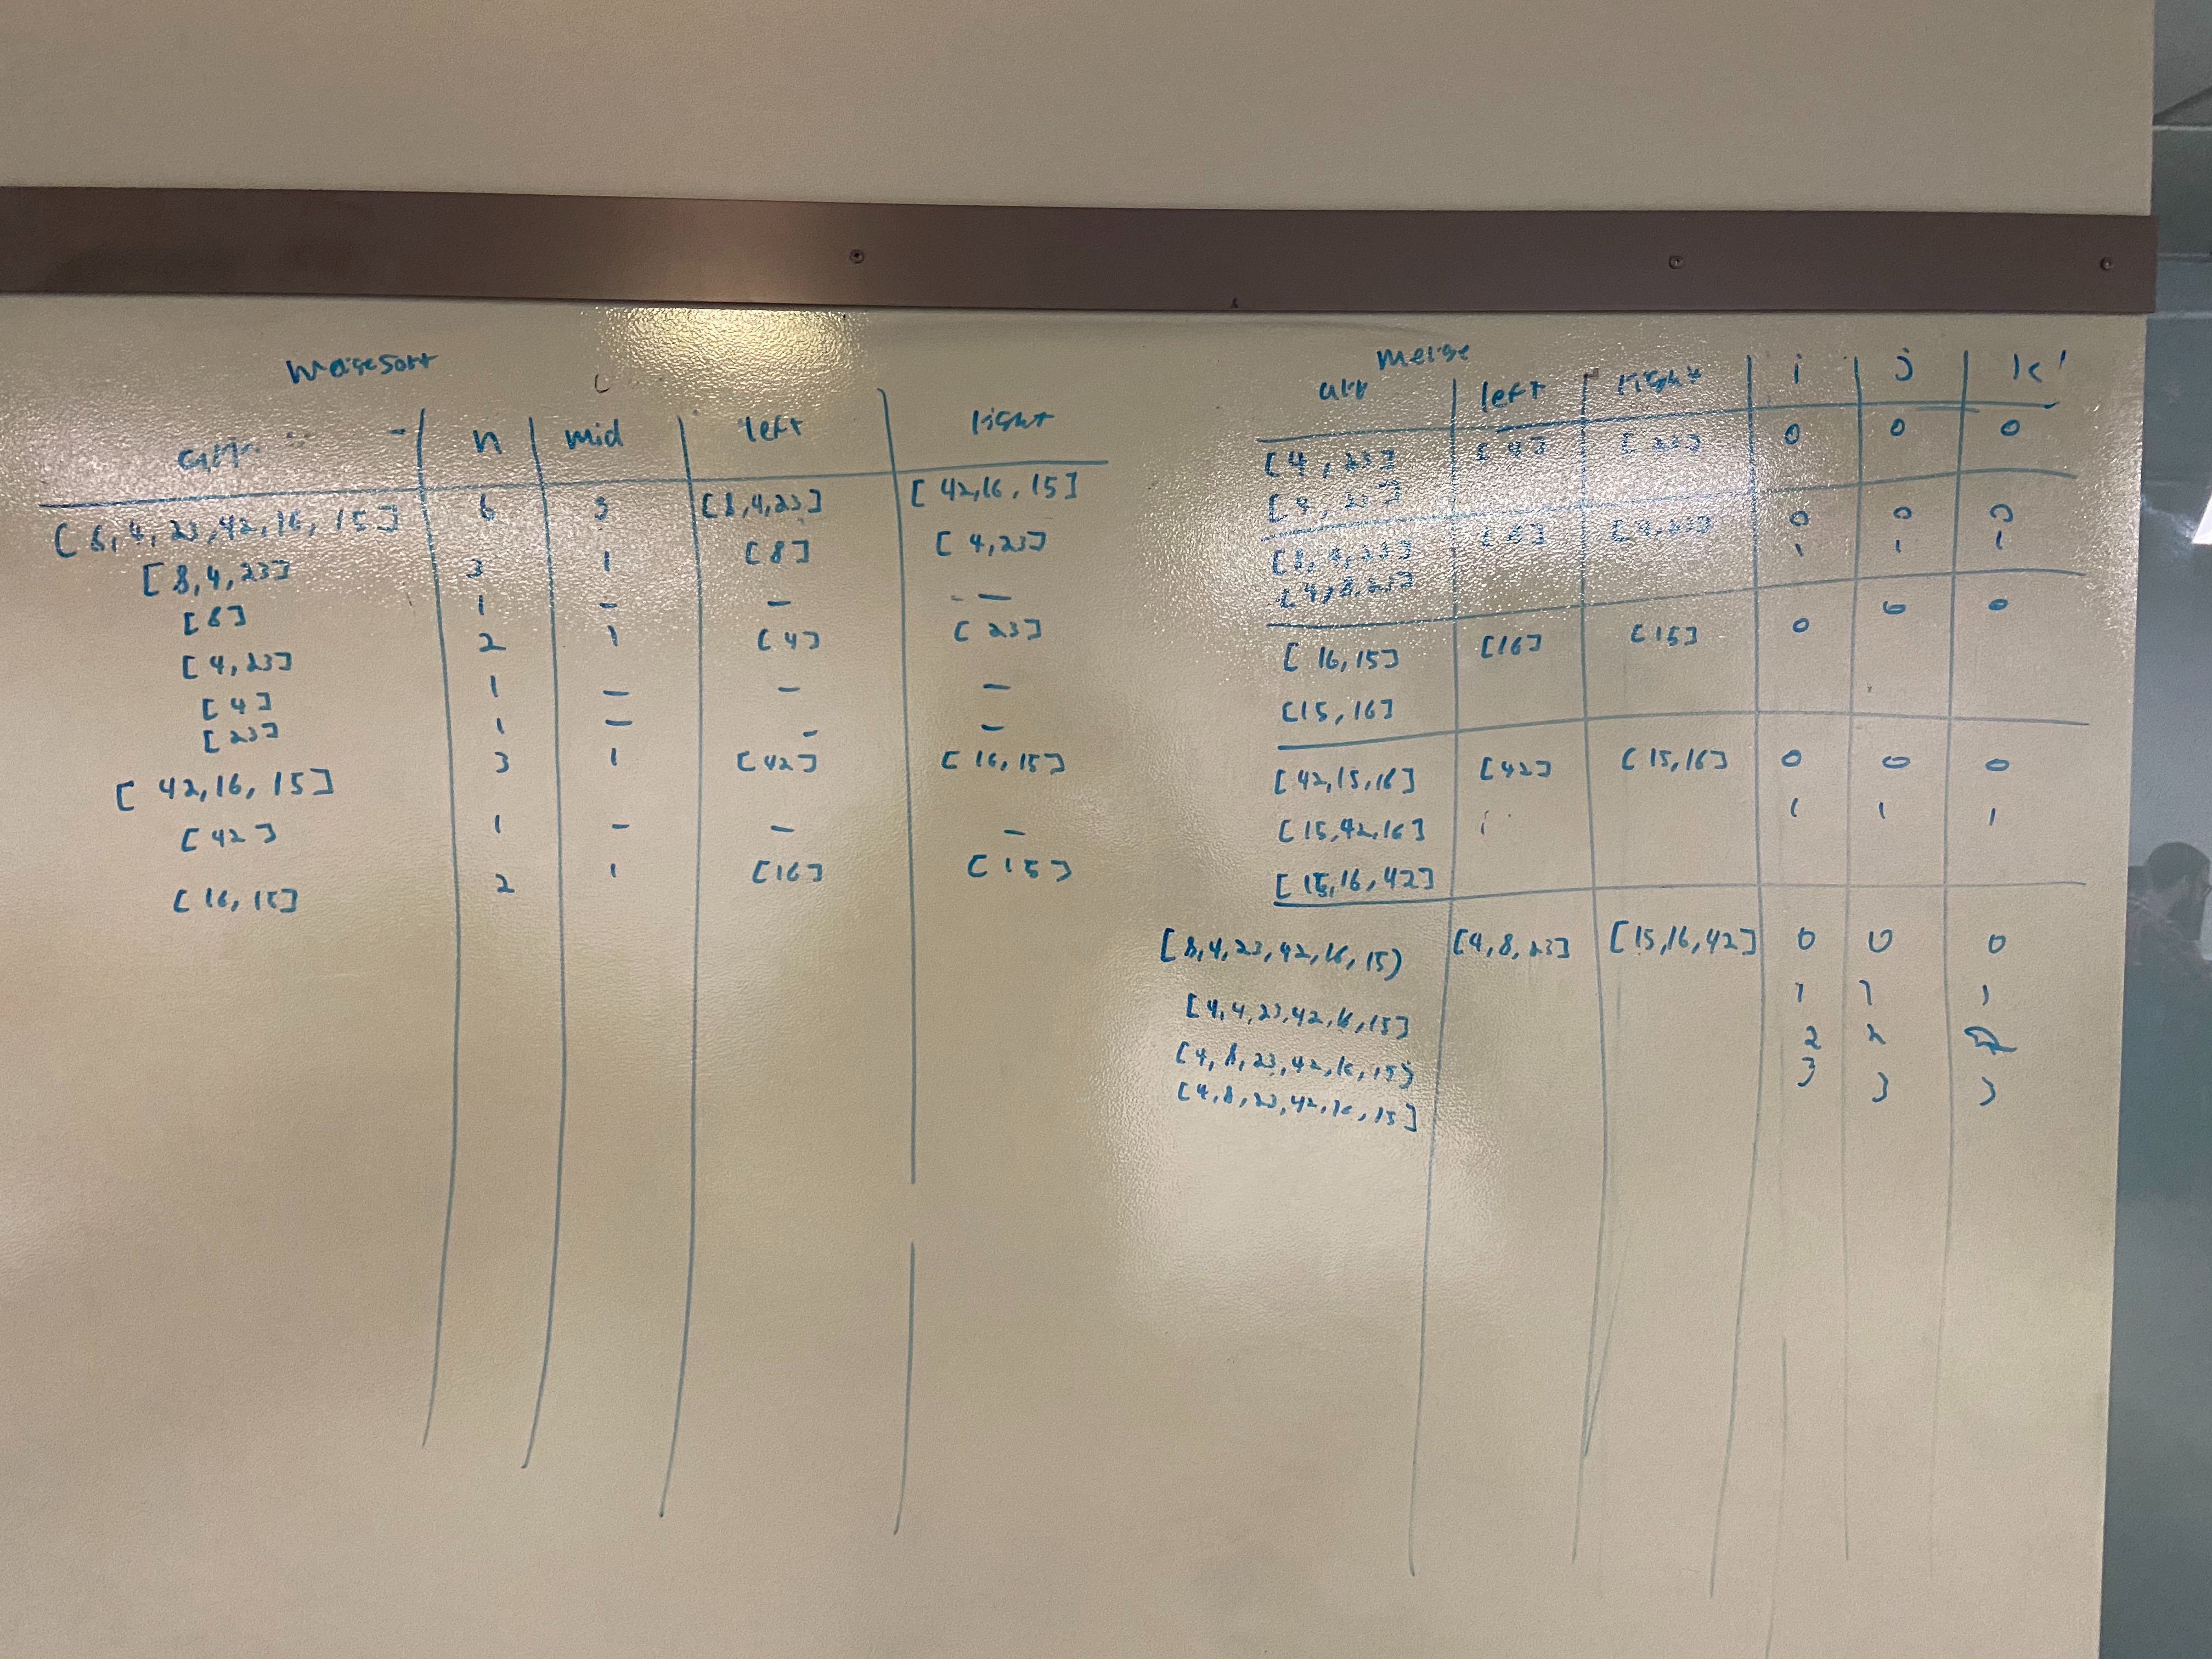 mergesort
arr n mid left right
[8,4,23,42,16,15] 6 3 [8,4,23] [42,16,15]
[8,4,23] 3 1 [8] [4,23]
[8] 1 – – –
[4,23] 2 1 [4] [23]
[4] 1 – – –
[23] 1 – – –
[42,16,15] 3 1 [42] [16,15]
[42] 1 – – –
[16,15] 2 1 [16] [15]
merge
arr left right i j k
[4,23] [4] [23] 0 0 0
[4,23]
[8,4,23] [8] [4,23] 0 0 0
[4,8,23] 1 1 1
[16,15] [16] [15] 0 0 0
[15,16]
[42,15,16] [42] [15,16] 0 0 0
[15,42,16] 1 1 1
[15,16,42]
[8,4,23,42,16,15) [4,8,23] [15,16,42] 0 0 0
[4,4,23,42,16,15] 1 1 1
[4,8,23,42,16,15) 2 2 2
[4,8,23,42,16,15] 3 3 3